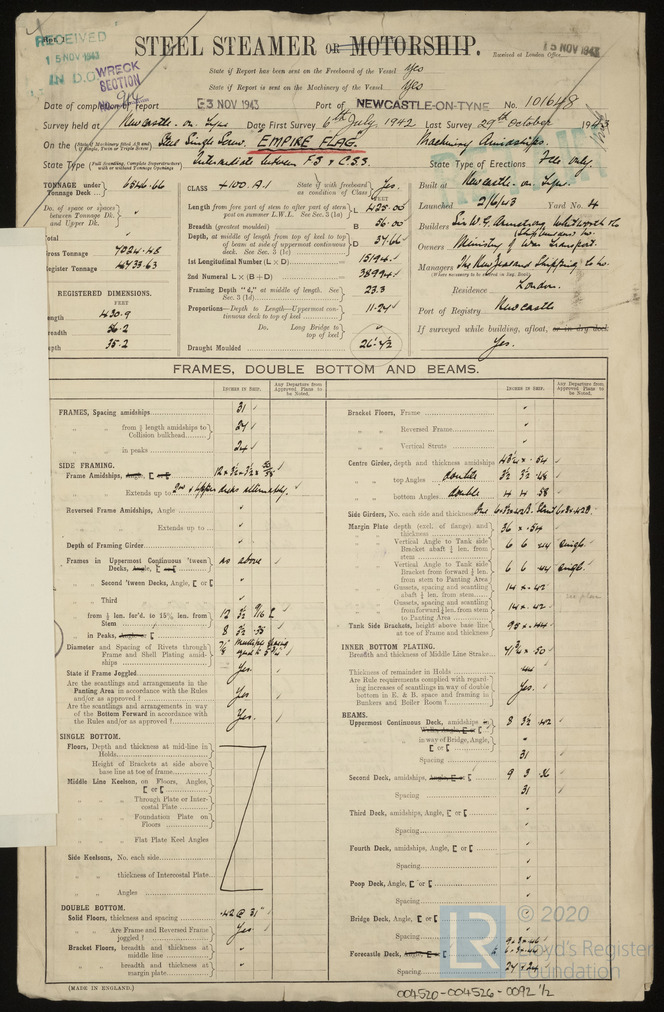 RECEIVED
15 NOV 1943
IN D.O.
WRECK
SECTION
STEEL STEAMER OR MOTORSHIP.
Received at London Office
15 NOV 1943
State if Report has been sent on the Freeboard of the Vessel Yes
State if Report is sent on the Machinery of the Vessel Yes
Date of completion of report 3 NOV 1943 Port of NEWCASTLE-ON-TYNE No. 101648
Survey held at Newcastle-on-Tyne Date First Survey 6th July, 1942 Last Survey 29th October 1943
On the Steel Single Screw "EMPIRE FLAG" Machinery Amidships.
State Type Intermediate between F.S & C.S.S. State Type of Erections Fcle only.
TONNAGE under Tonnage Deck 6546.66
Do. of space or spaces between Tonnage Dk. and Upper Dk.
Total
Gross Tonnage 7024.48
Register Tonnage 4933.63
REGISTERED DIMENSIONS.
FEET
Length 430.9
Breadth 56.2
Depth 35.2
CLASS +100.A.1 State if with freeboard as condition of Class Yes.
FEET
Length from fore part of stem to after part of stern post on summer L.W.L. See Sec. 3 (1a) L 425.00
Breadth (greatest moulded) B 56.00
Depth, at middle of length from top of keel to top of beam at side of uppermost continuous deck. See Sec. 3 (1c) D
1st Longitudinal Number (L × D)
2nd Numeral L × (B + D) 38994
Framing Depth "d," at middle of length. See Sec. 3 (1d) 23.3
Proportions—Depth to Length—Uppermost continuous deck to top of keel 11.24
Do. Long Bridge to top of keel
Draught Moulded
Built at Newcastle-on-Tyne.
Launched 2/6/43 Yard No. 4
Builders Sir W. G. Armstrong Whitworth &
Owners Ministry of War Transport.
Managers The New Zealand Shipping Co. Ld.
(Where necessary to be entered in Reg. Book)
Residence London.
Port of Registry Newcastle
If surveyed while building, afloat, or in dry dock
Yes.
FRAMES, DOUBLE BOTTOM AND BEAMS.
INCHES IN SHIP.
Any Departure from Approved Plans to be Noted.
INCHES IN SHIP.
Any Departure from Approved Plans to be Noted.
FRAMES, Spacing amidships 31
" " from ⅕ length amidships to Collision bulkhead 27
" " in peaks 24
SIDE FRAMING.
Frame Amidships, Angle, [ or [
" " Extends up to 2nd & Upper decks alternately.
Reversed Frame Amidships, Angle
" " Extends up to
Depth of Framing Girder
Frames in Uppermost Continuous 'tween Decks, Angle, [ or [ as above
" " Second 'tween Decks, Angle, [ or [
" " Third
" " from ⅕ len. for'd. to 15% len. from Stem
" " in Peaks, Angle or [ 8 3½ .35
Diameter and Spacing of Rivets through Frame and Shell Plating amidships
State if Frame Joggled Yes.
Are the scantlings and arrangements in the Panting Area in accordance with the Rules and/or as approved? Yes
Are the scantlings and arrangements in way of the Bottom Forward in accordance with the Rules and/or as approved? Yes.
SINGLE BOTTOM.
Floors, Depth and thickness at mid-line in Holds
Height of Brackets at side above base line at toe of frame
Middle Line Keelson, on Floors, Angles, [ or [
" " Through Plate or Intercostal Plate
" " Foundation Plate on Floors
" " Flat Plate Keel Angles
Side Keelsons, No. each side
" " thickness of Intercostal Plate
" " Angles
DOUBLE BOTTOM.
Solid Floors, thickness and spacing .42 @ 31"
" " Are Frame and Reversed Frame joggled? Yes
Bracket Floors, breadth and thickness at middle line
" " breadth and thickness at margin plate
Bracket Floors, Frame
" " Reversed Frame
" " Vertical Struts
Centre Girder, depth and thickness amidships 43½ × .54
" " top Angles double 3½ 3½ .48
" " bottom Angles double 4 4 .58
Side Girders, No. each side and thickness
Margin Plate depth (excl. of flange) and thickness 36 × .54
" " Vertical Angle to Tank side Bracket abaft ¼ len. from stem 6 6 .44 single
" " Vertical Angle to Tank side Bracket from forward ¼ len. from stem to Panting Area 6 6 .44 single
" " Gussets, spacing and scantling abaft ¼ len. from stem 14 × .42
" " Gussets, spacing and scantling from forward ¼ len. from stem to Panting Area 14 × .42
Tank Side Brackets, height above base line at toe of Frame and thickness
INNER BOTTOM PLATING.
Breadth and thickness of Middle Line Strake
Thickness of remainder in Holds .44
Are Rule requirements complied with regarding increases of scantlings in way of double bottom in E. & B. space and framing in Bunkers and Boiler Room? Yes.
BEAMS.
Uppermost Continuous Deck, amidships 8 3½ .42
" " in way of Bridge, Angle, [ or [
Spacing 31
Second Deck, amidships, Angle, [ or [ 9 3 .36
Spacing 31
Third Deck, amidships, Angle, [ or [
Spacing
Fourth Deck, amidships, Angle, [ or [
Spacing
Poop Deck, Angle, [ or [
Spacing
Bridge Deck, Angle, [ or [
Spacing
Forecastle Deck, Angle, [ or [
Spacing 27 & 24
(MADE IN ENGLAND.)
LR
© 2020
Lloyd's Register
Foundation
004520-004526-0092 ½